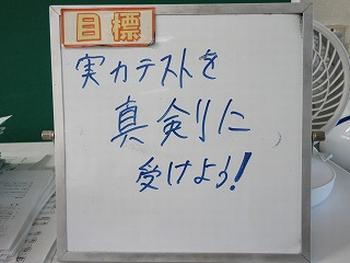 目標
実力テストを
真剣に
受けよう!